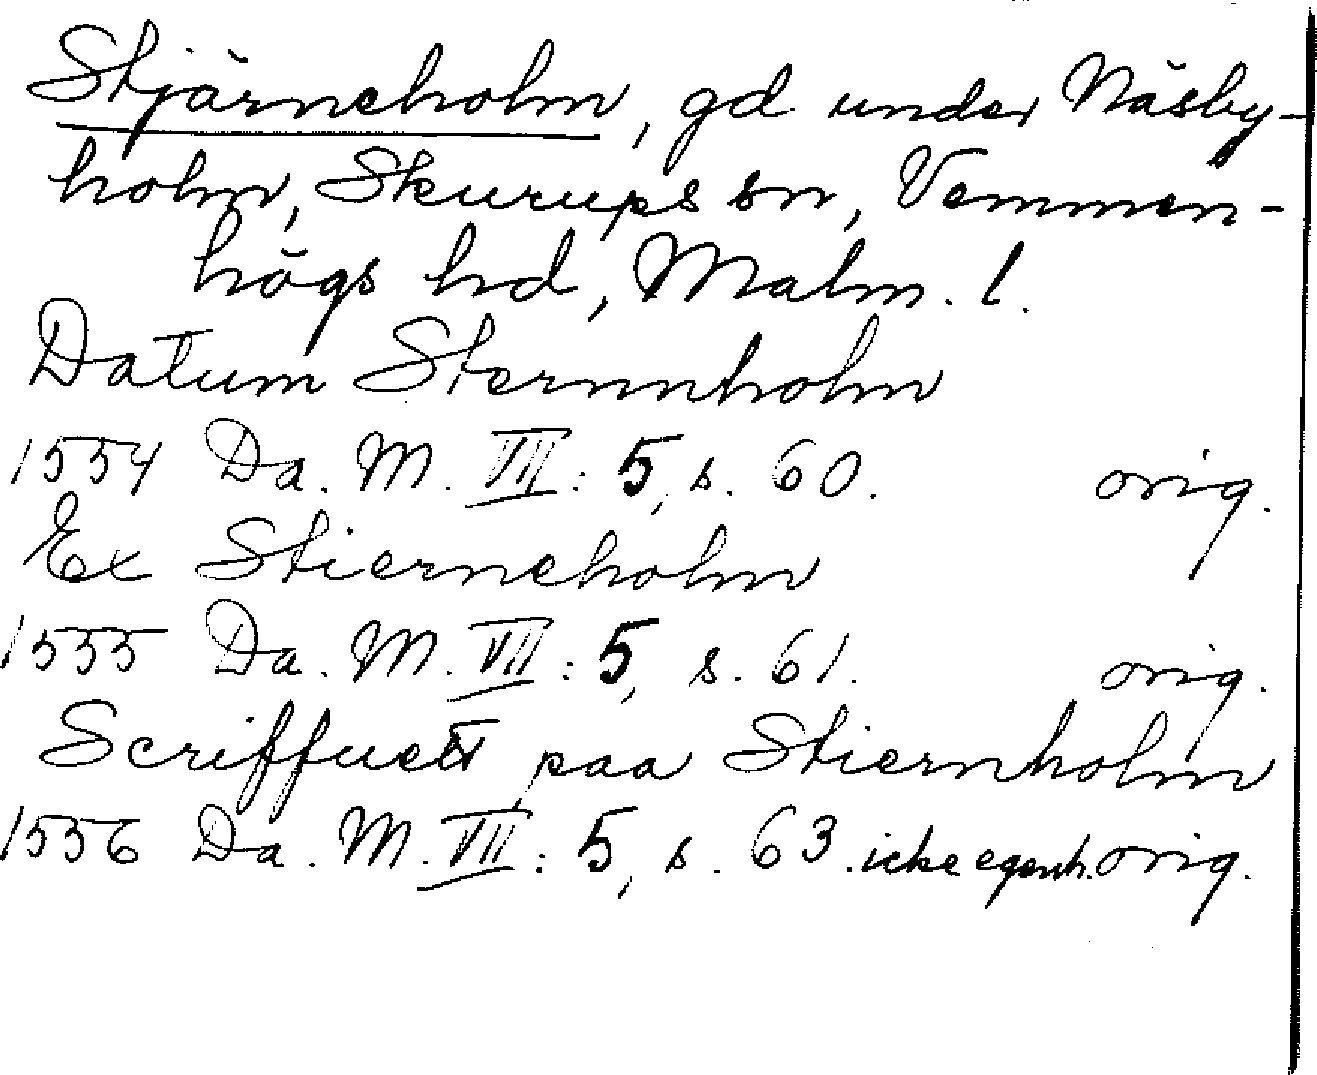 Stjärneholm, gd under Näsby-
holm, Skurups sn, Vemmen-
högs hd, Malm. l.
Datum Sternnholm
1554 Da. M. VII: 5, s. 60. orig.
Ex Stierneholm
1555 Da. M. VII: 5, s. 61. orig.
Scriffuett paa Stiernholm
1556 Da. M. VII: 5, s. 63. icke egenh. orig.